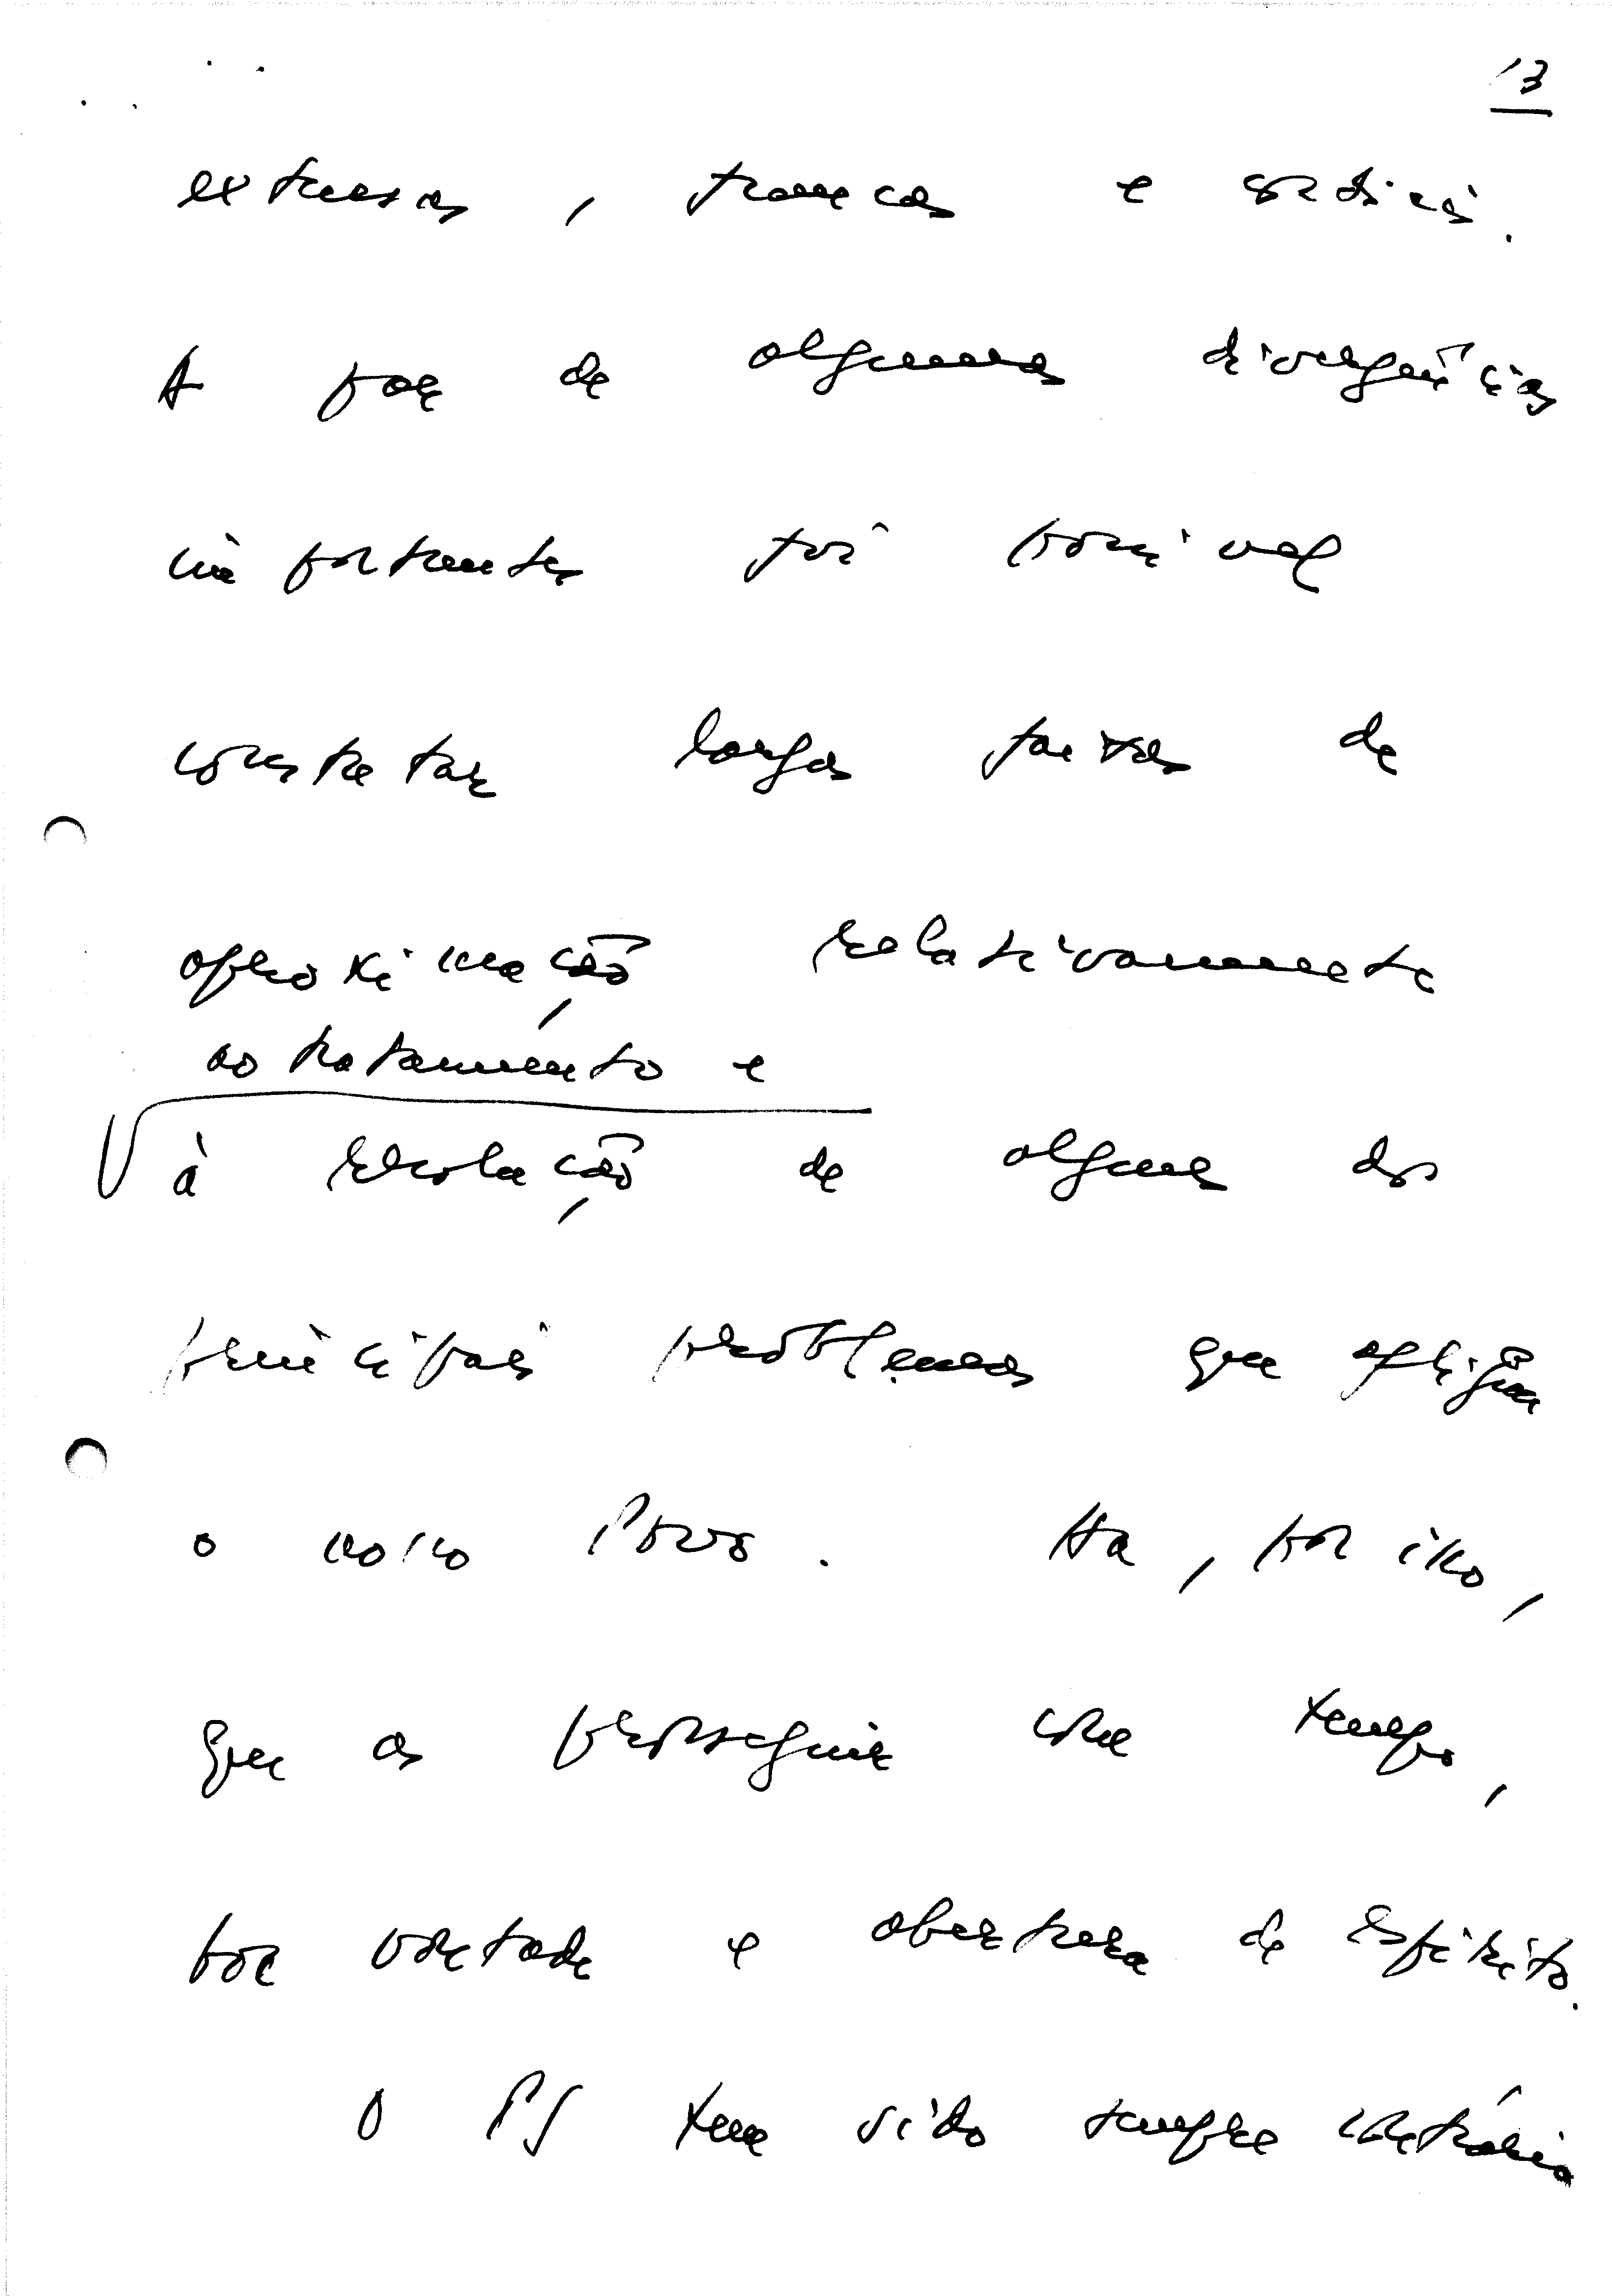 13
extensas, francas e cordiais.
A par de algumas divergências
importantes foi possível
constatar largas faixas de
aproximação relativamente
ao tratamento e
à resolução de alguns dos
principais problemas que afligem
o nosso Povo. Há, por isso,
que as prosseguir com tempo,
boa vontade e abertura de espírito.
O PS tem sido sempre contrário